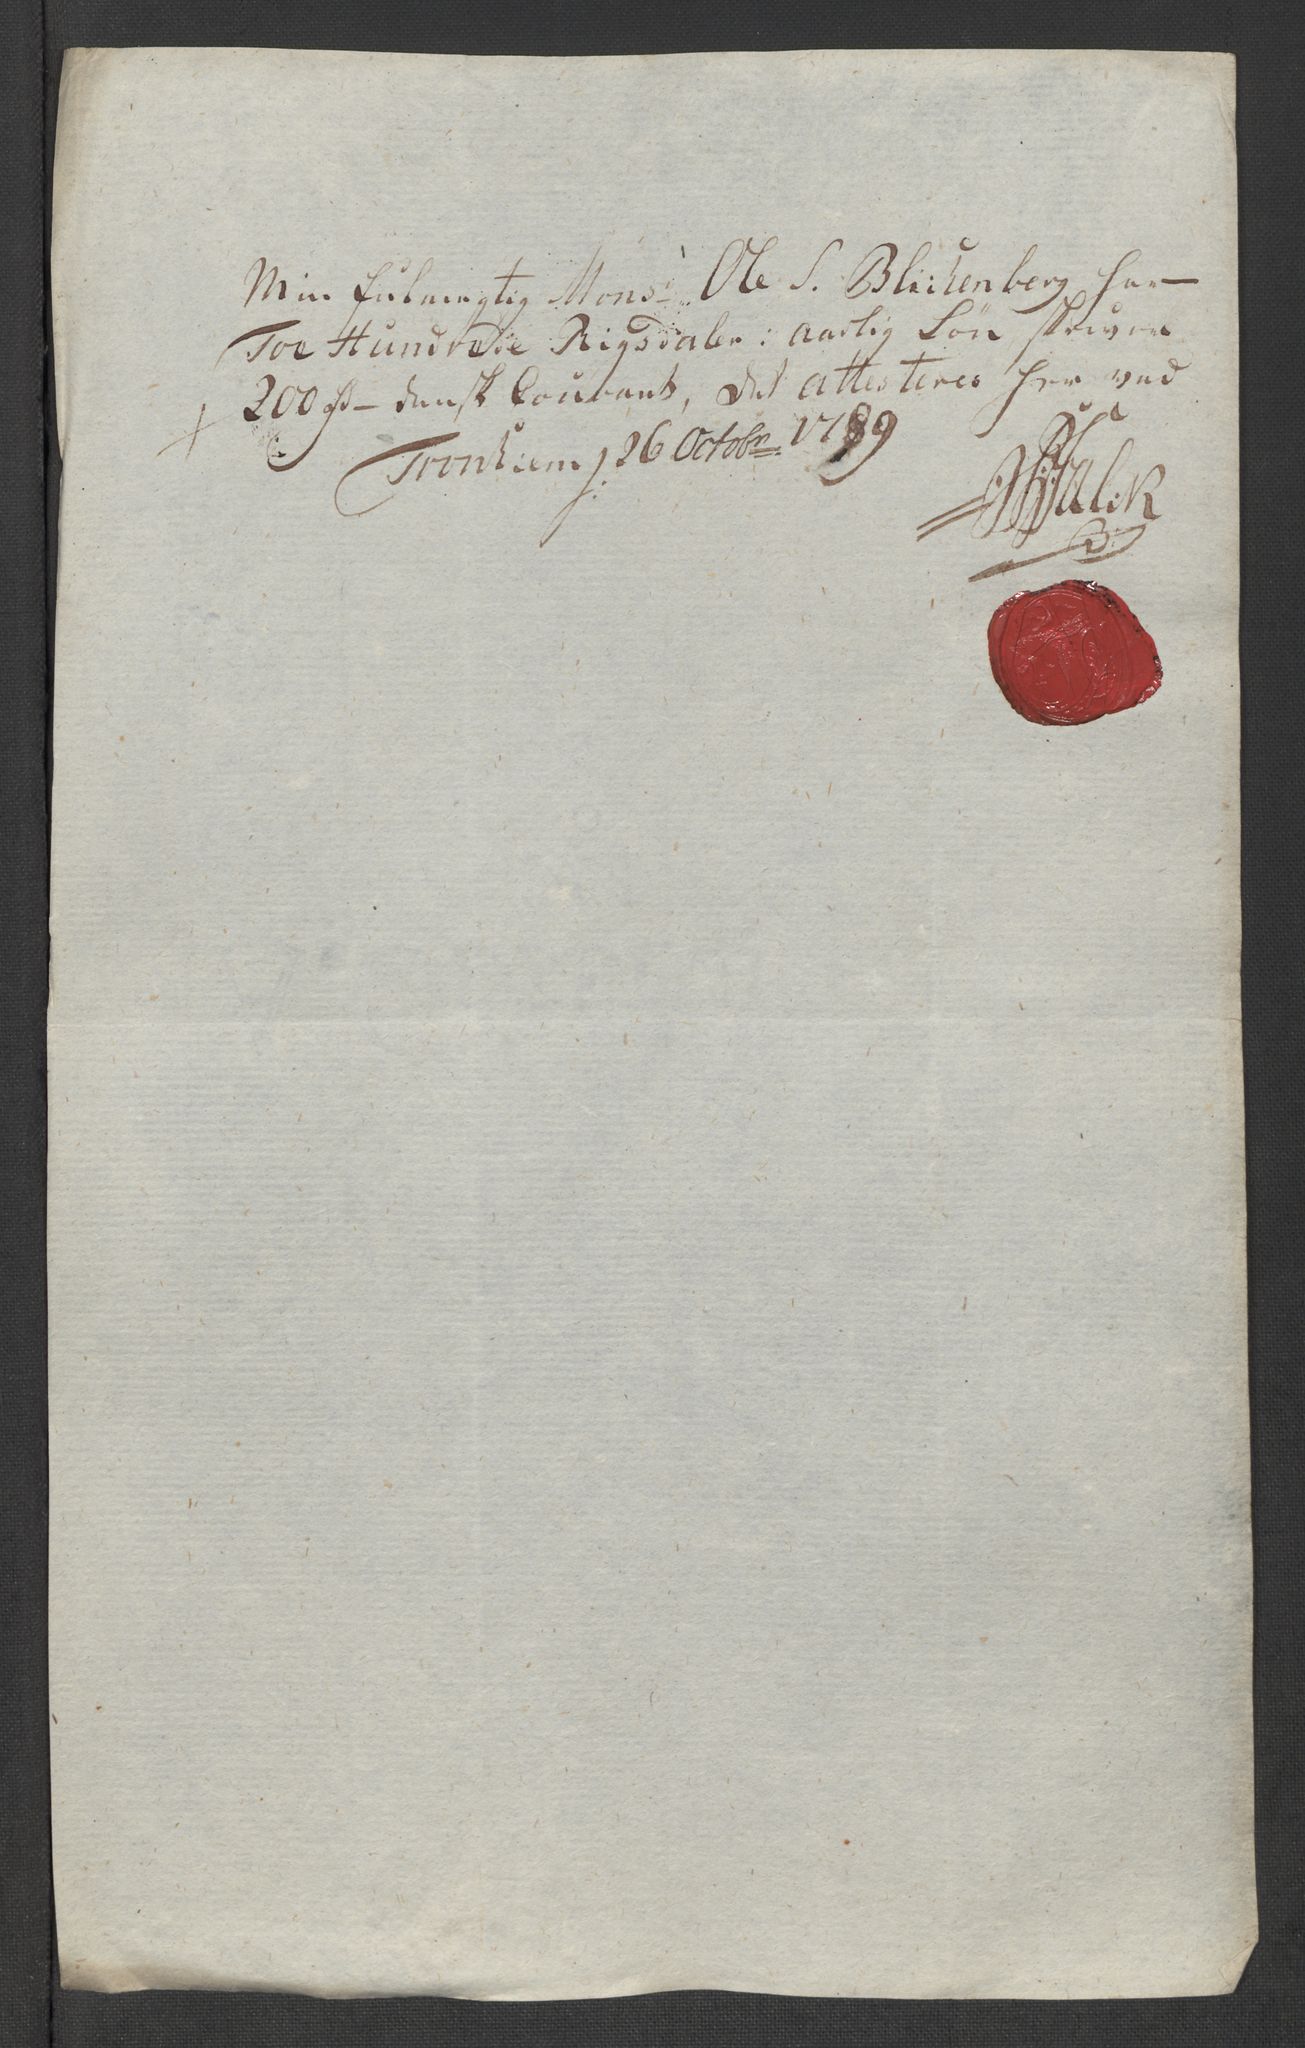 Min fulmegtig Mons.r Ole S. Blichenberg har
Toe Hundrede Rigsdaler: aarlig Løn, skriver
200 rd– dansk Courant, det attesteres her ved
Tronhiem d. 26 Octobr. 1789
Falck